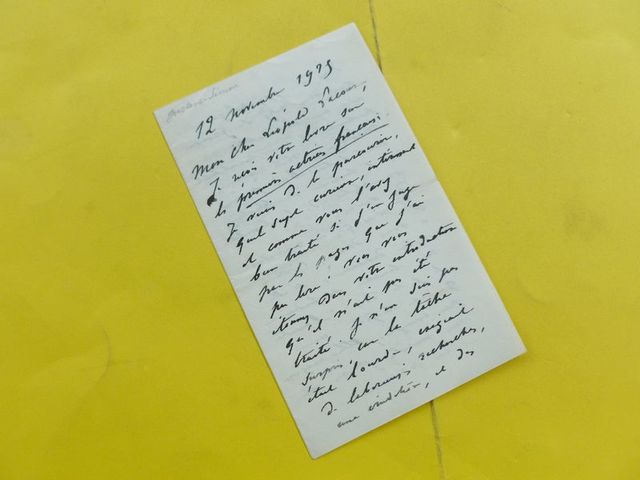 12 novembre 1919
Mon cher Léopold Lacour,
Je reçois votre livre sur
les premières actrices françaises.
Je viens de le parcourir,
Quel sujet curieux, intéressant
et comme vous l'avez
bien traité si j'en juge
par les pages que j'ai
pu lire ! vous vous
étonnez dans votre introduction
qu'il n'ait pas été
traité. Je n'en suis pas
surpris, car la tâche
était lourde, exigeait
de laborieuses recherches,
une érudition, et des